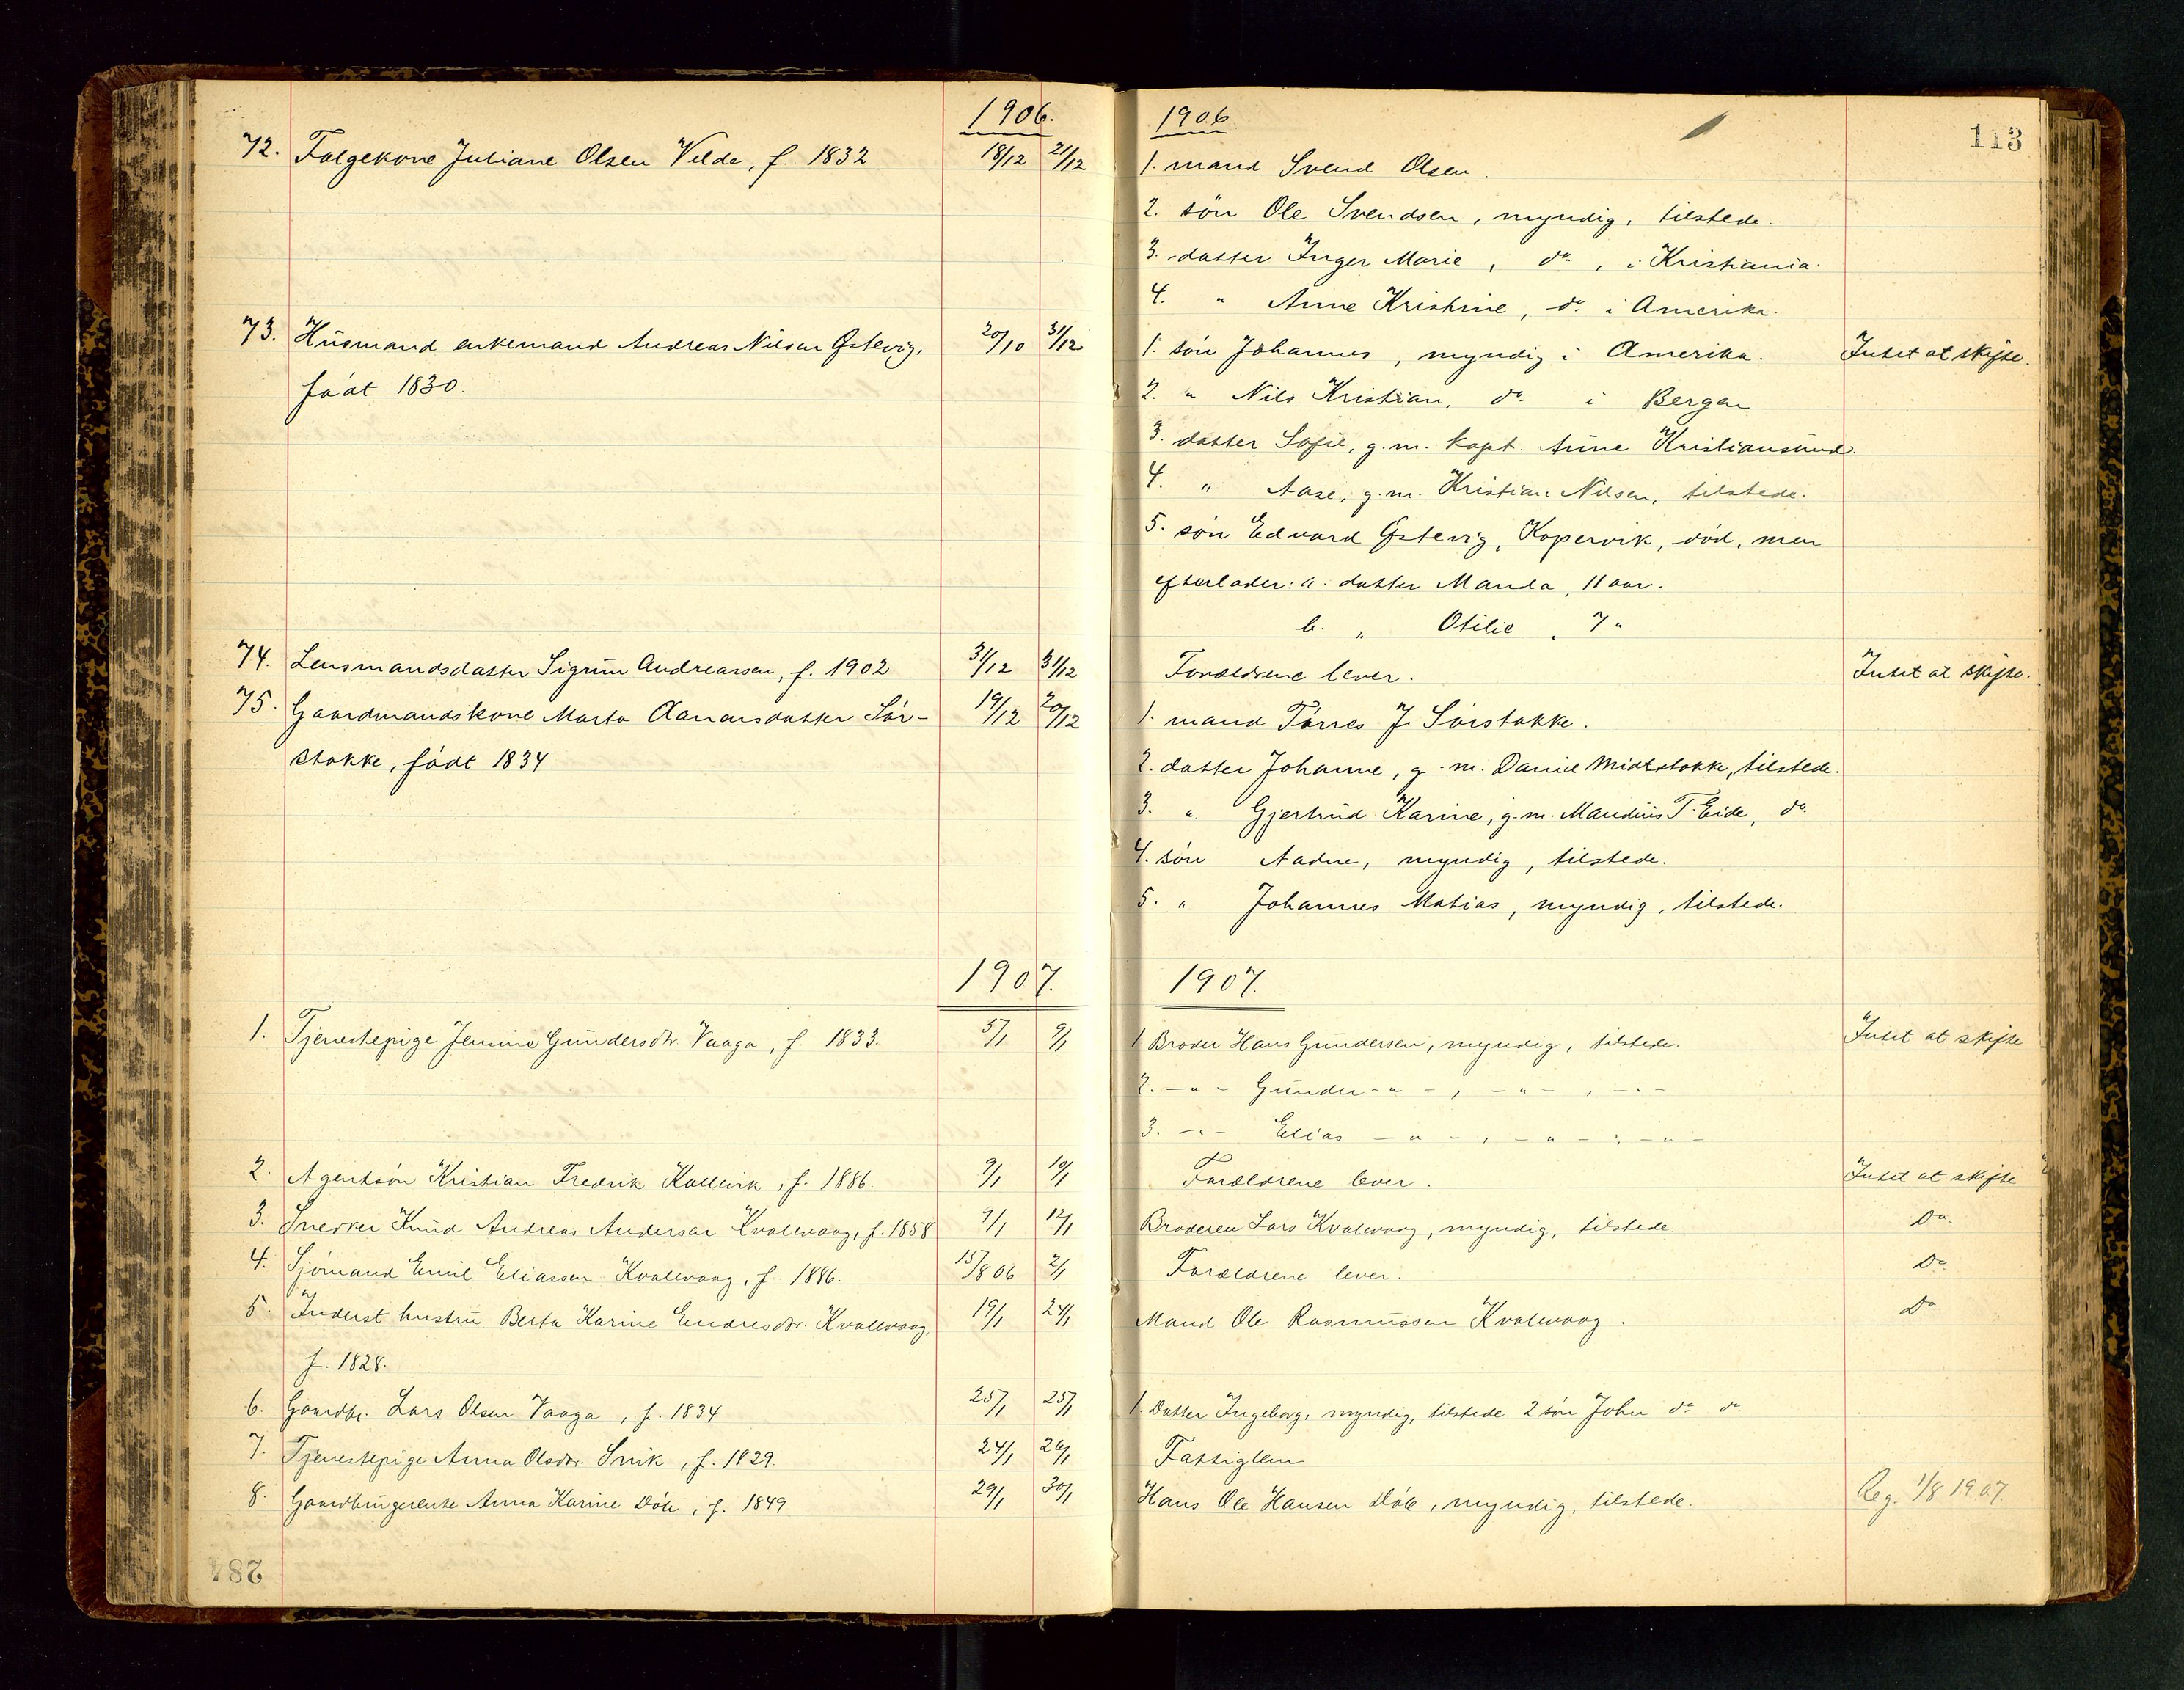 1906.
72. Folgekone Juliane Olsen Velde, f. 1832 18/12 21/12
73. Husmand enkemand Andreas Nilsen Østevig, 20/10 31/12
født 1830.
74. Lensmandsdatter Sigrun Andreassen, f. 1902 31/12 31/12
75. Gaardmandskone Marta Aanensdatter Sør- 19/12 20/12
stokke, født 1834
1907.
1. Tjenestepige Jemine Gundersdtr. Vaaga, f. 1833. 5/1 9/1
2. Agentsøn Kristian Fredrik Kallevik, f. 1886. 9/1 10/1
3. Snekker Knud Andreas Andersen Kvalevaag, f. 1858 9/1 12/1
4. Sjømand Emil Eliassen Kvalevaag, f. 1886. 15/8 06 2/1
5. Inderst hustru Berta Karine Endresdtr. Kvalevaag, 19/1 24/1
f. 1828.
6. Gaardbr. Lars Olsen Vaaga, f. 1834 25/1 25/1
7. Tjenestepige Anna Olsdtr. Snik, f. 1829. 24/1 26/1
8. Gaardbrugerenke Anna Karine Døle, f. 1849 29/1 30/1
284
1906
113
1. mand Svend Olsen.
2. søn Ole Svendsen, myndig, tilstede.
3. datter Inger Marie, do., i Kristiania.
4. " Anne Kristine, do. i Amerika.
1. søn Johannes, myndig i Amerika. Intet at skifte.
2. " Nils Kristian, do. i Bergen
3. datter Sofie, g.m. kapt. Aune Kristiansund.
4. " Aase, g.m. Kristian Nilsen, tilstede.
5. søn Edvard Østevig, Kopervik, død, men
efterlader: a. datter Manda, 11 aar.
b. " Otilie, 7 "
Forældrene lever. Intet at skifte.
1. mand Tørres J. Sørstokke.
2. datter Johanne, g.m. Daniel Midtstokke, tilstede.
3. " Gjertrud Karine, g.m. Mandius T. Eide, do.
4. søn Aadne, myndig, tilstede.
5. " Johannes Matias, myndig, tilstede.
1907.
1 Broder Hans Gundersen, myndig, tilstede. Intet at skifte
2. -"- Gunder -"-, -"-, -"-
3. -"- Elias -"-, -"-, -"-
Forældrene lever. Intet at skifte
Broderen Lars Kvalevaag, myndig, tilstede. Do.
Forældrene lever. Do.
Mand Ole Rasmussen Kvalevaag. Do
1. Datter Ingeborg, myndig, tilstede. 2 søn John do do.
Fattiglem
Hans Ole Hansen Døle, myndig, tilstede. Reg. 1/8 1907.